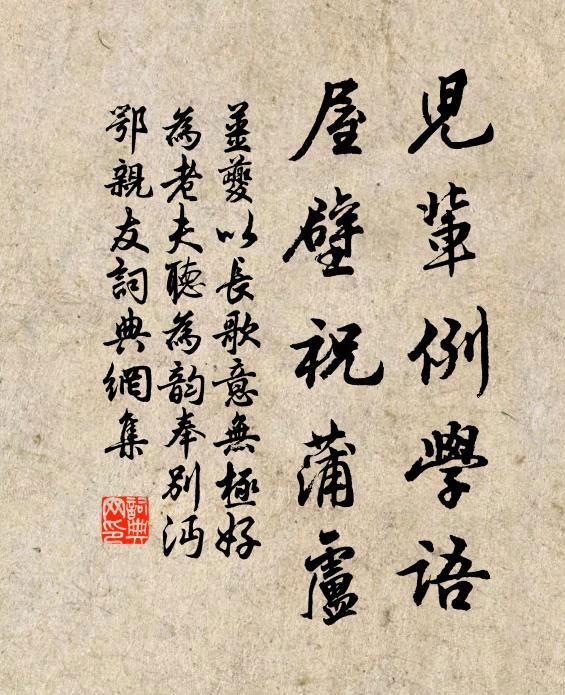 兒輩例學語
屋壁祝蒲盧
薑夔以長歌意無極好
為老夫聽為韵奉別沔
鄂親友詞典網集
詞典
网印